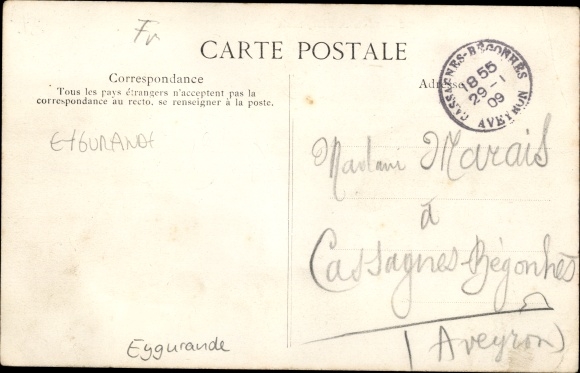 Fr
CARTE POSTALE
Correspondance
Tous les pays étrangers n'acceptent pas la
correspondance au recto, se renseigner à la poste.
EYGURANDE
Eygurande
Adresse
CASSAGNES-BÉGONHÈS
18 55
29 - 1
09
AVEYRON
Madame Marais
à
Cassagnes-Bégonhès
(Aveyron)